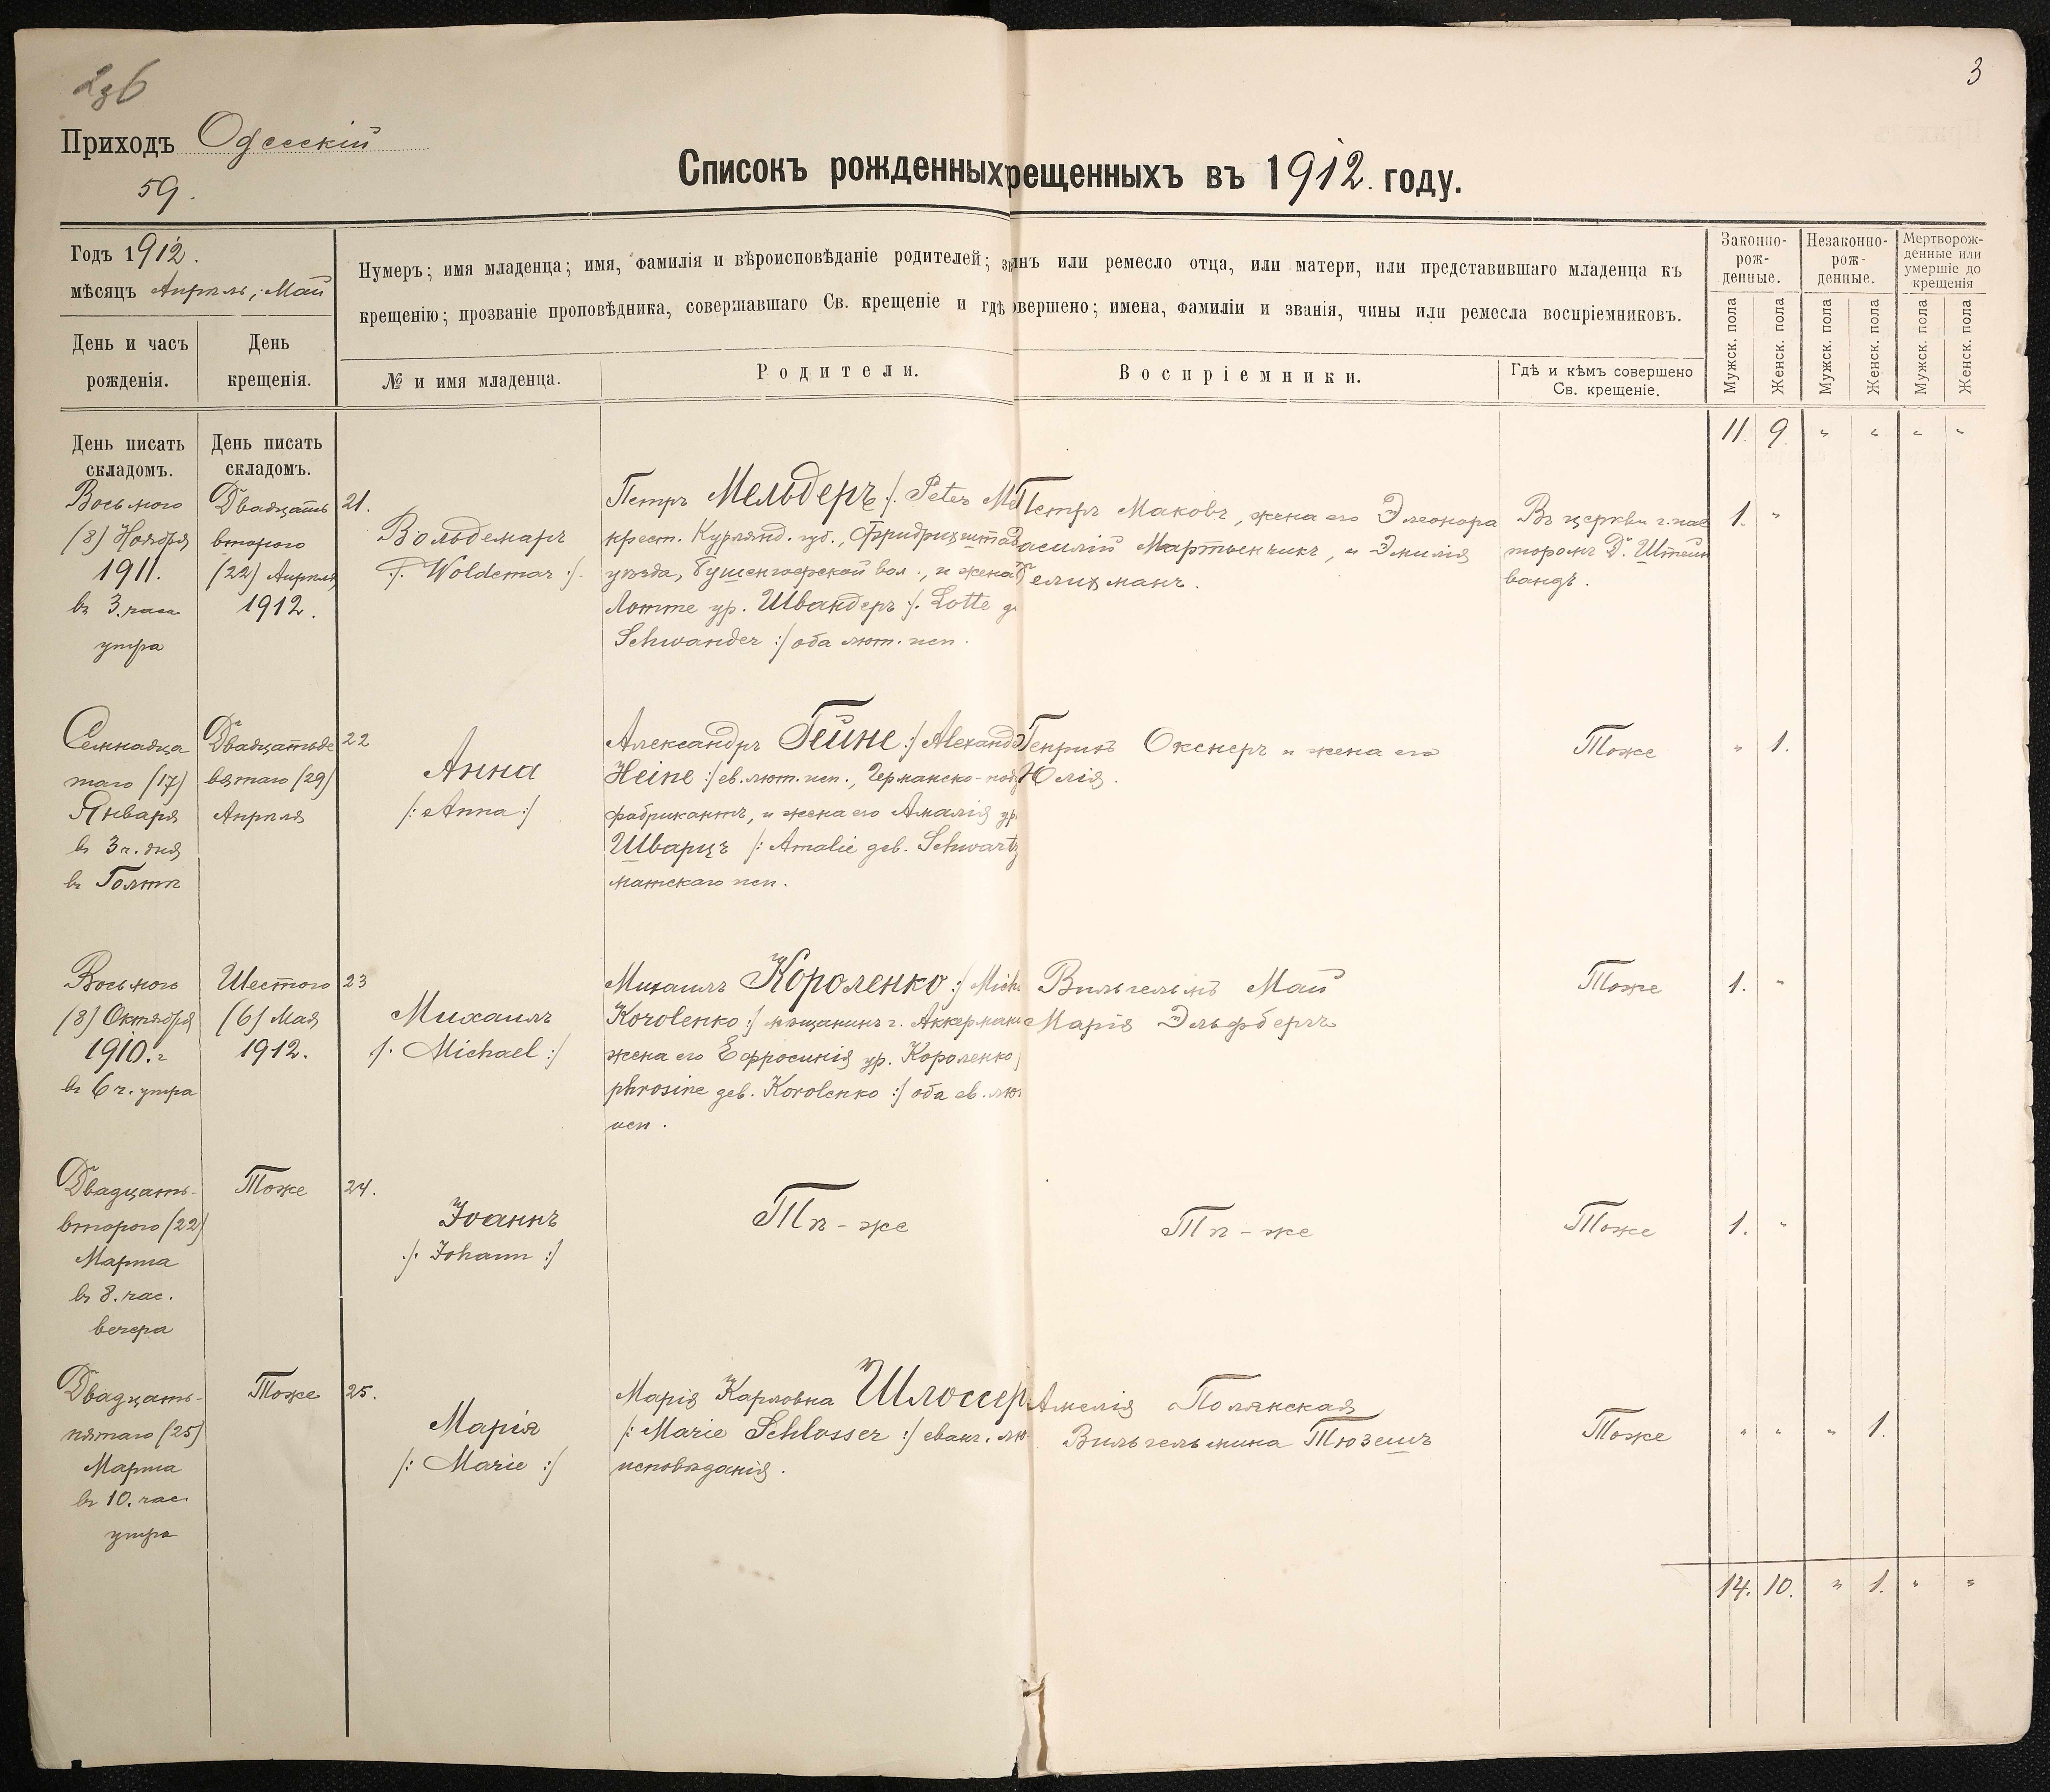 3
Приходъ Одесскій
59.
Списокъ рожденныхъ рещенныхъ въ 1912. году.
Годъ 1912.
мѣсяцъ Апрѣль, Май
Нумеръ; имя младенца; имя, фамилія и вѣроисповѣданіе родителей; инъ или ремесло отца, или матери, или представившаго младенца къ
крещенію; прозваніе проповѣдника, совершавшаго Св. крещеніе и гдѣ овершено; имена, фамиліи и званія, чины или ремесла воспріемниковъ.
Законно-
рож-
денные.
Незаконно-
рож-
денные.
Мертворож-
денные или
умершіе до
крещенія
Мужск. пола
Женск. пола
Мужск. пола
Женск. пола
Мужск. пола
Женск. пола
День и часъ
рожденія.
День
крещенія.
№ и имя младенца.
Родители.
Воспріемники.
Гдѣ и кѣмъ совершено
Св. крещеніе.
11. 9. " " " "
День писать
складомъ.
День писать
складомъ.
Восьмого
(8) Ноября
1911.
въ 3. часа
утра
Двадцать
второго
(22) Апрѣля
1912.
21.
Вольдемаръ
/: Woldemar :/
Петръ Мельдеръ /: Peter
крест. Курлянд. губ., Фридрихштад
уѣзда, вол., и жена
Лотте ур. Швандеръ /: Lotte g
Schwander :/ оба лют. исп.
Петръ Маковъ, жена его Элеонора
асилій Мартынчикъ, и Эмилія
елихманъ.
Въ церкви г. пас
торомъ Д. Штейн
вандъ.
1. "
Семнадца
таго (17)
Января
въ 3 ч. дня
въ Голтѣ
Двадцатьде
вятаго (29)
Апрѣля
22
Анна
/: Anna :/
Александръ Гейне :/ Alexand
Heine :/ ев. лют. исп., Германско-под
фабрикантъ, и жена его Амалія ур.
Шварцъ /: Amalie geb. Schwartz
матскаго исп.
Генрихъ Окснеръ и жена его
Юлія.
Тоже
" 1.
Восьмого
(8) Октября
1910.
въ 6 ч. утра
Шестого
(6) Мая
1912.
23
Михаилъ
/: Michael :/
Михаилъ Короленко :/ Mich
Korolenko :/ мѣщанинъ г. Аккерман
жена его Ефросинія ур. Короленко
phrosine geb. Korolenko :/ оба ев. лю
исп.
Вильгельмъ Май
Марія Эльфбергъ
Тоже
1. "
Двадцать-
второго (22)
Марта
въ 8. час.
вечера
Тоже
24.
Іоаннъ
/: Johann :/
Тѣ-же
Тѣ-же
Тоже
1. "
Двадцать-
пятаго (25)
Марта
въ 10. час.
утра
Тоже
25.
Марія
/: Marie :/
Марія Карловна Шлоссер
/: Marie Schlosser :/ еванг. лю
исповѣданія.
Амелія Полянская
Вильгельмина Тюзешъ
Тоже
" " " 1.
14. 10. " 1. " "